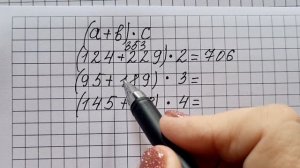 (a+b)·c
353
(124+229)·2=706
(95+189)·3=
(145+ )·4=